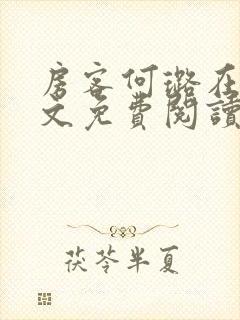 房客何璐在
文免費閱讀
茯苓半夏